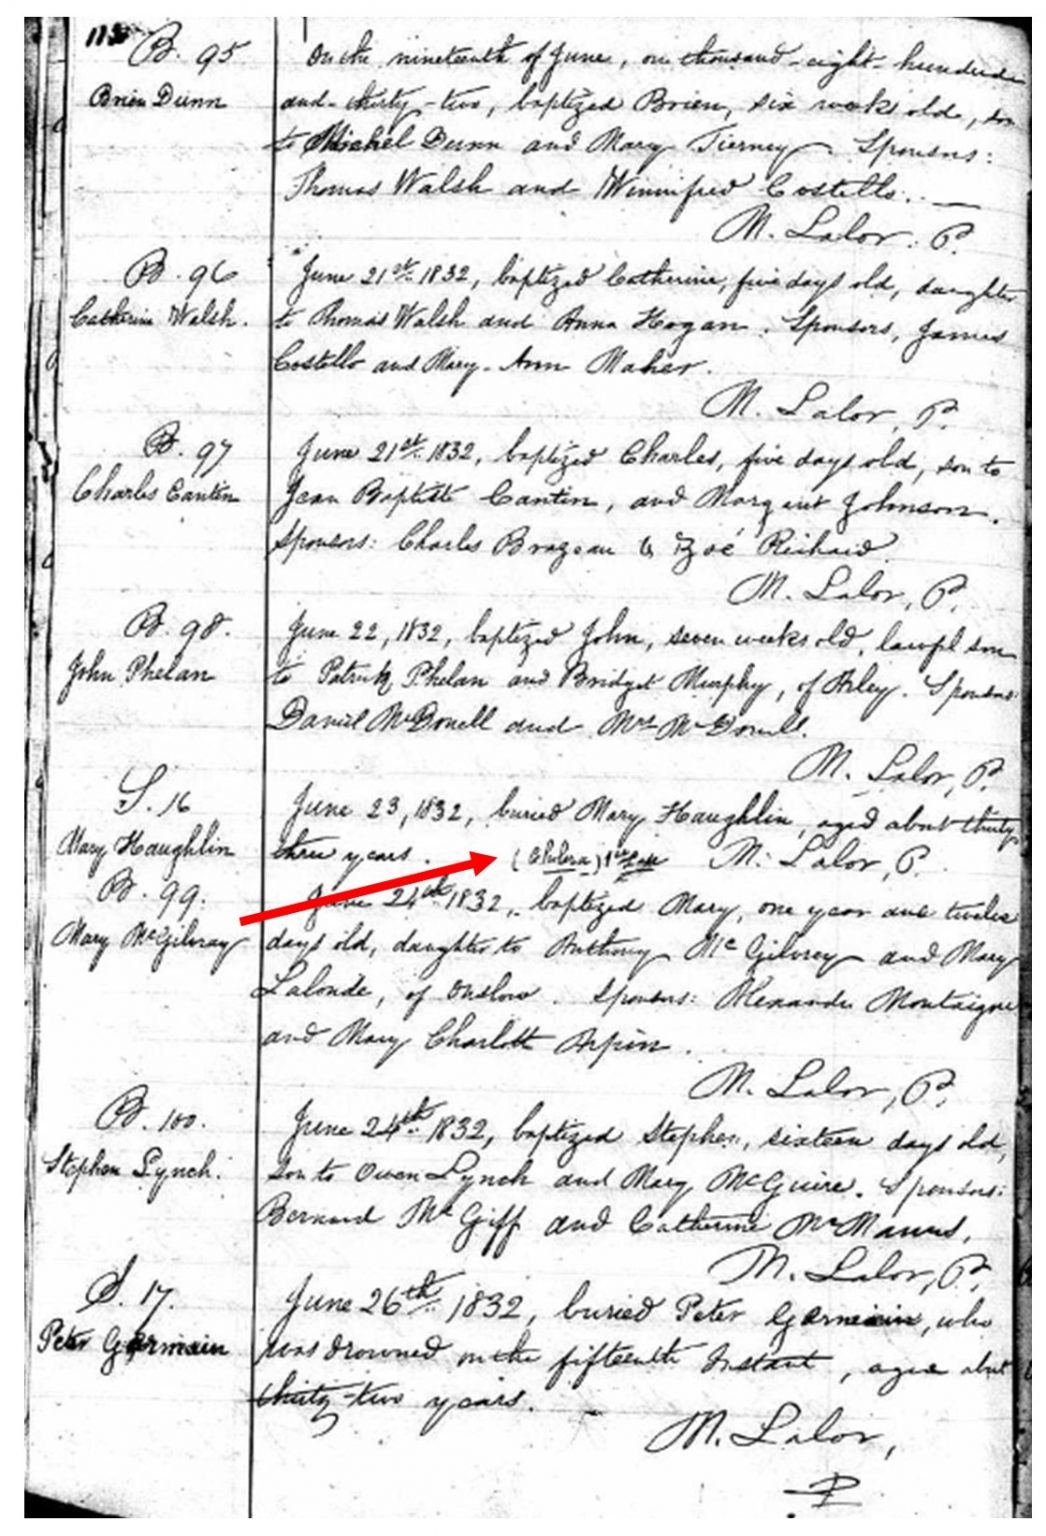 113
B. 95
Brien Dunn
On the nineteenth of June, one thousand-eight-hundred
and-thirty-two, baptized Brien, six weeks old, son
to Michel Dunn and Mary Tierney. Sponsors:
Thomas Walsh and Winnifred Costello.
M. Lalor. P.
B. 96
Catherine Walsh.
June 21st. 1832, baptized Catherine, five days old, daughter
to Thomas Walsh and Anna Hogan. Sponsors, James
Costello and Mary-Ann Maher.
M. Lalor, P.
B. 97
Charles Cantin
June 21st. 1832, baptized Charles, five days old, son to
Jean Baptiste Cantin, and Margaret Johnson.
Sponsors: Charles Brazeau & Zoé Richard.
M. Lalor, P.
B. 98.
John Phelan
June 22, 1832, baptized John, seven weeks old, lawful son
to Patrick Phelan and Bridget Murphy, of Sponsors
Daniel McDonell and Mrs McDonell.
M. Lalor, P.
S. 16
Mary Haughlin
June 23, 1832, buried Mary Haughlin, aged about thirty
three years. (Cholera) 1st Case M. Lalor, P.
B. 99.
Mary McGilvray
June 24th 1832, baptized Mary, one year and twelve
days old, daughter to Anthony McGilvrey and Mary
Lalonde, of Onslow. Sponsors: Alexandre Montaigne
and Mary Charlott Arpin.
M. Lalor, P.
B. 100.
Stephen Lynch.
June 24th. 1832, baptized Stephen, sixteen days old,
son to Owen Lynch and Mary McGuire. Sponsors:
Bernard McGiff and Catherine McManus.
M. Lalor, P.
S. 17.
Peter Germain
June 26th. 1832, buried Peter Germain, who
was drowned on the fifteenth Instant, aged abut
thirty-two years.
M. Lalor,
P